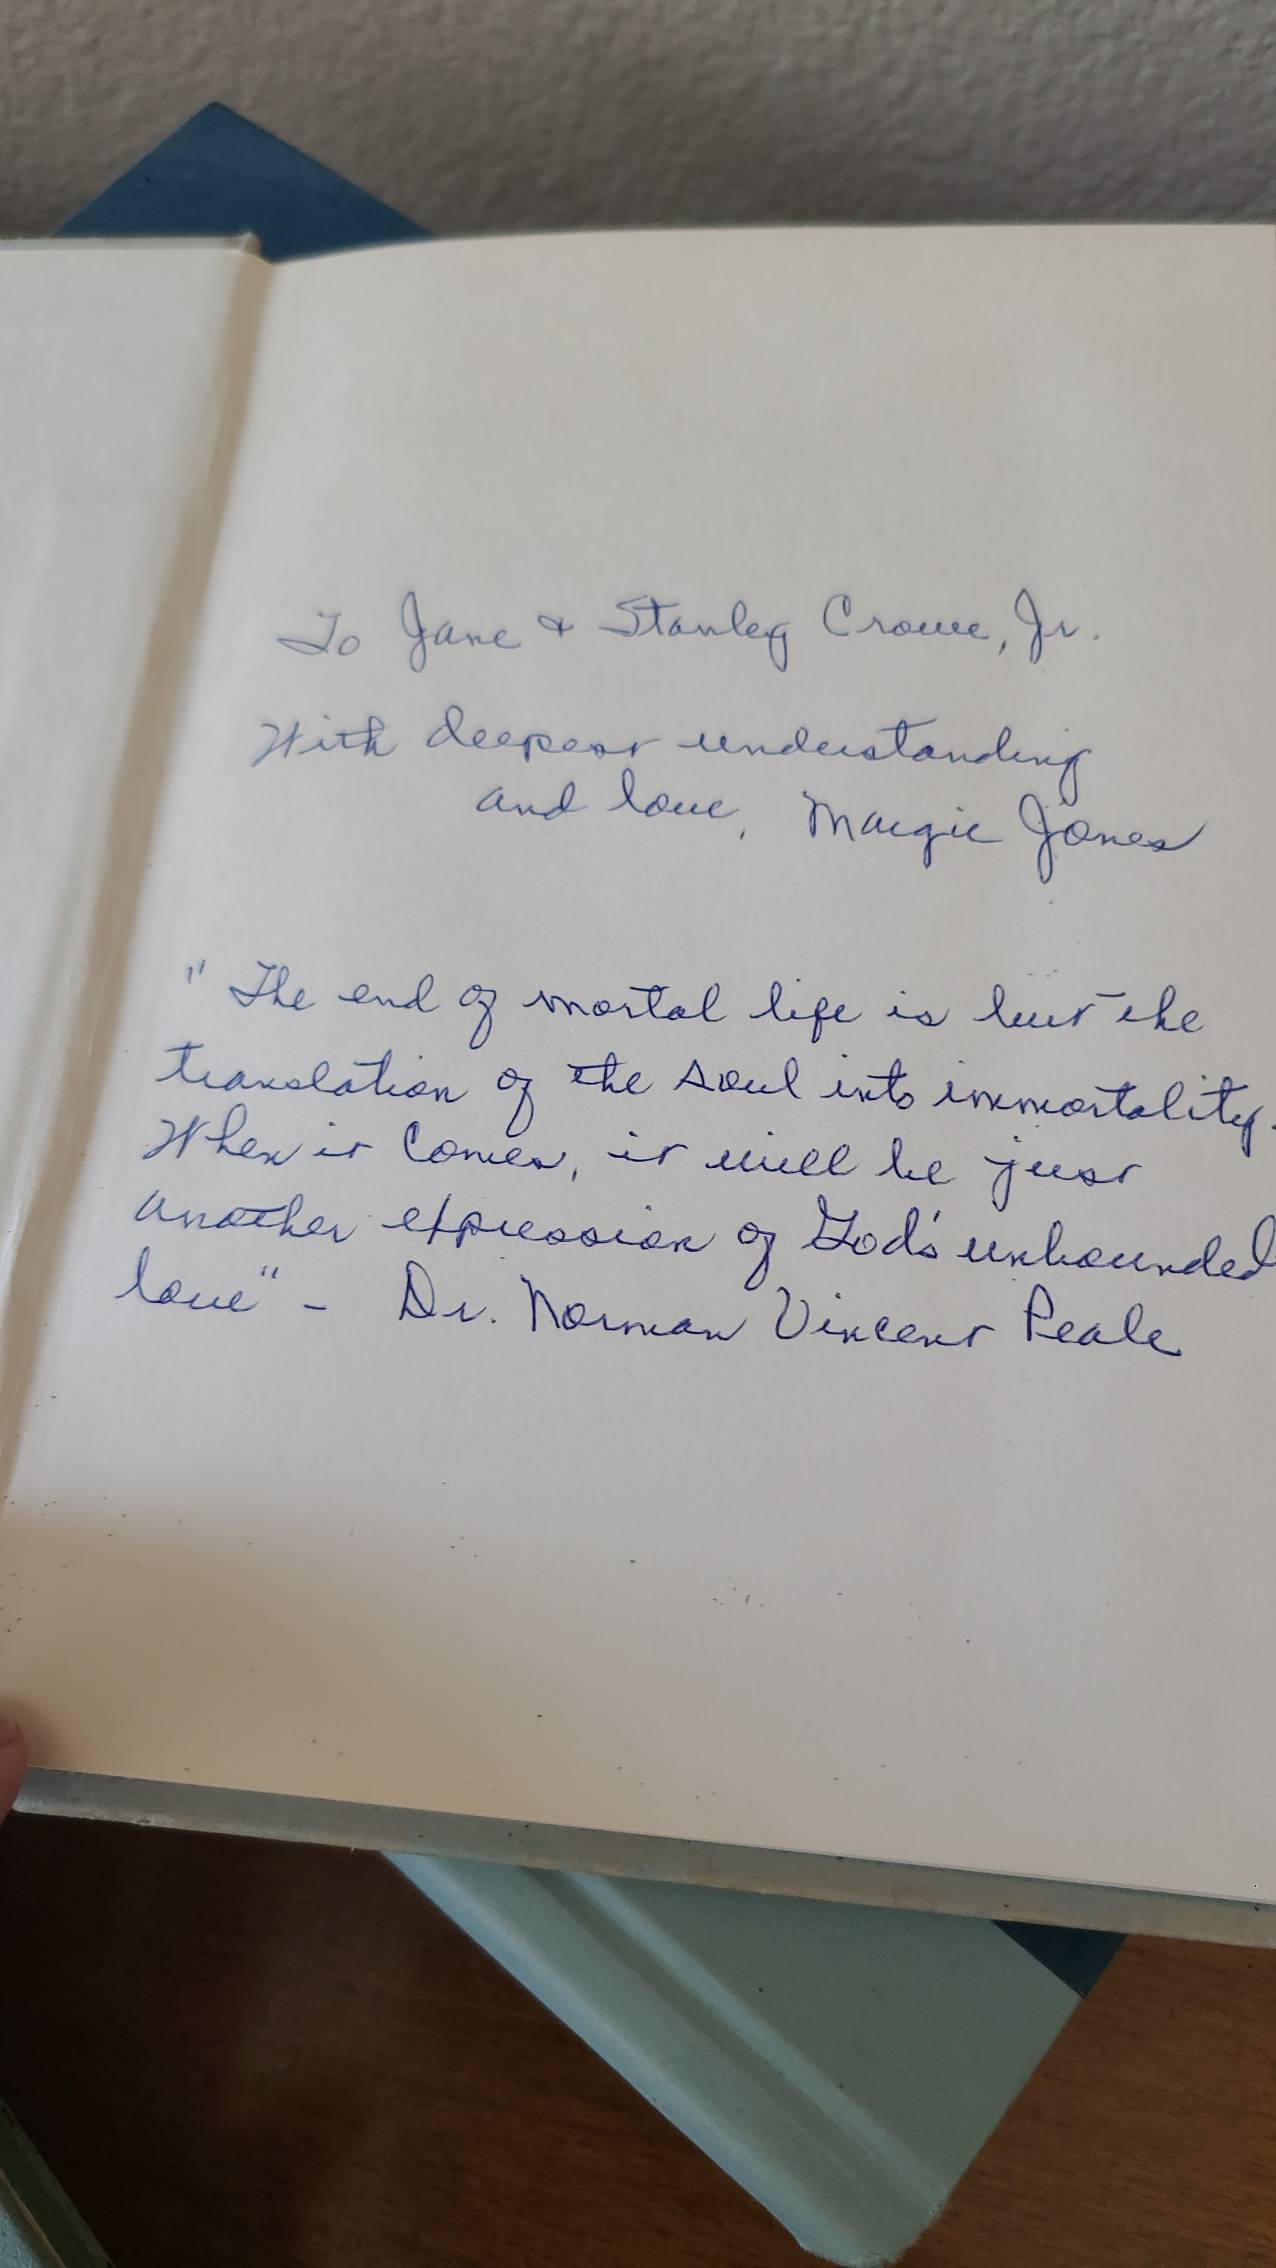 To Jane & Stanley Crowe, Jr.
With deepest understanding
and love, Margie Jones
"The end of mortal life is but the
translation of the soul into immortality.
When it comes, it will be just
another expression of God's unbounded
love" - Dr. Norman Vincent Peale